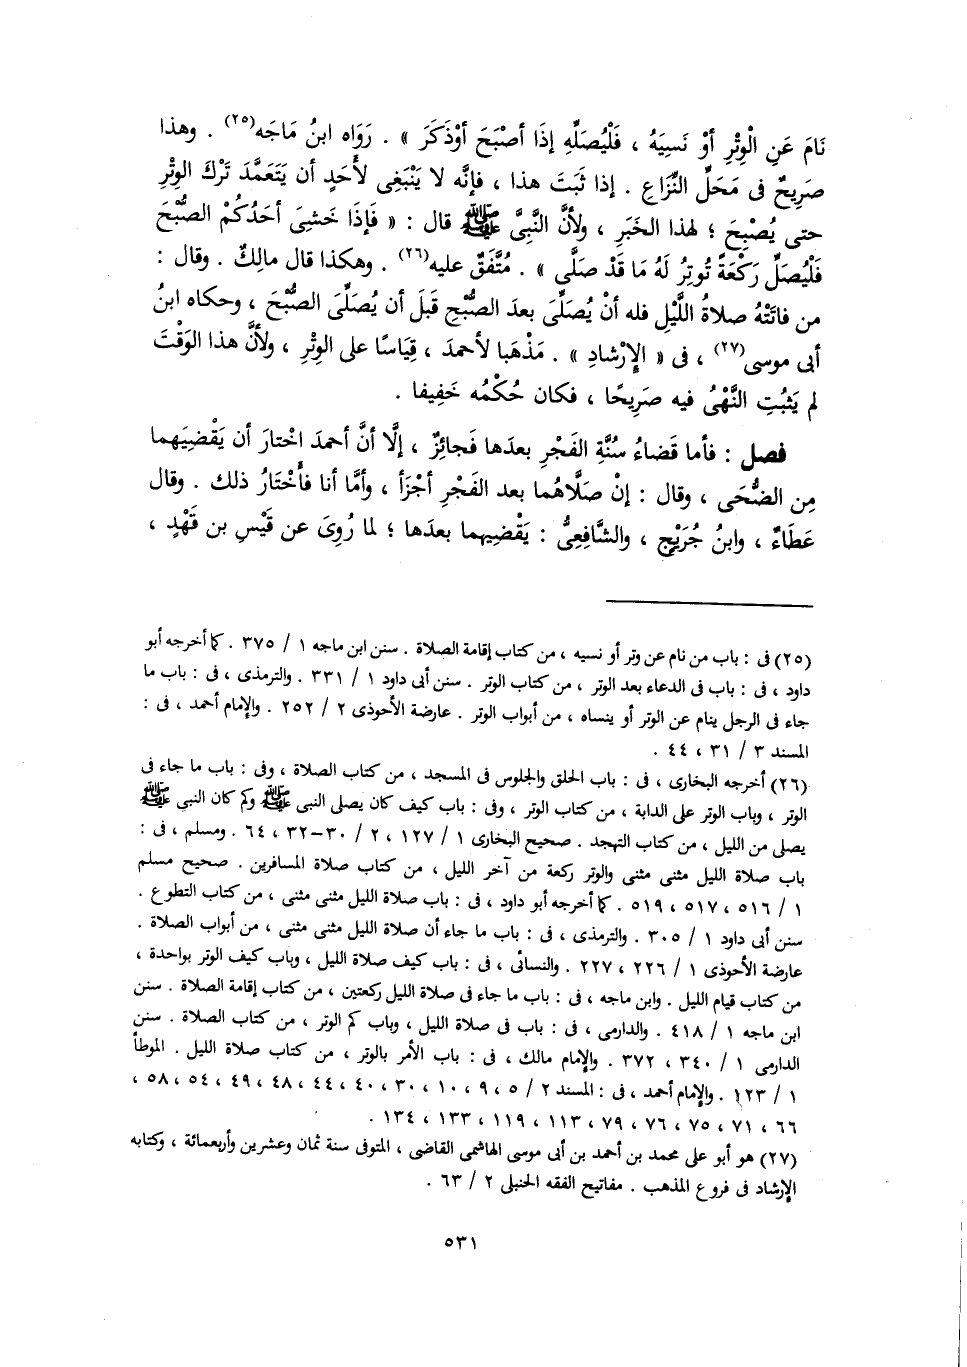 نَامَ عَنِ الْوِتْرِ أوْ نَسِيَهُ ، فَلْيُصَلِّهِ إذَا أصْبَحَ أوْذَكَرَ » . رَوَاه ابنُ مَاجَه(٢٥) . وهذا
صَرِيحٌ فى مَحَلِّ النِّزَاعِ . إذا ثَبَتَ هذا ، فإنَّه لا يَنْبَغِى لأَحَدٍ أن يَتَعَمَّدَ تَرْكَ الوِتْرِ
حتى يُصْبِحَ ؛ لهذا الخَبَرِ ، ولأنَّ النَّبِىَّ ﷺ قال : « فَإذَا خَشِىَ أحَدُكُمْ الصُّبْحَ
فَلْيُصَلِّ رَكْعَةً تُوتِرُ لَهُ مَا قَدْ صَلَّى » . مُتَّفَقٌ عليه(٢٦) . وهكذا قال مالِكٌ . وقال :
من فاتَتْهُ صلاةُ اللَّيْلِ فله أنْ يُصَلِّىَ بعدَ الصُّبْحِ قبلَ أن يُصَلِّىَ الصُّبْحَ ، وحكاه ابنُ
أبى موسى(٢٧) ، فى « الإِرْشادِ » . مَذْهَبا لأحمدَ ، قِيَاسًا على الوِتْرِ ، ولأنَّ هذا الوَقْتَ
لم يَثبُتِ النَّهْىُ فيه صَرِيحًا ، فكان حُكْمُه خَفِيفا .
فصل : فأما قَضاءُ سُنَّةِ الفَجْرِ بعدَها فَجائِزٌ ، إلَّا أنَّ أحمدَ اخْتارَ أن يَقْضِيَهما
مِن الضُّحَى ، وقال : إنْ صَلَّاهُما بعد الفَجْرِ أجْزَأ ، وأمَّا أنا فأَخْتَارُ ذلك . وقال
عَطَاءٌ ، وابنُ جُرَيْجٍ ، والشَّافِعِىُّ : يَقْضِيهما بعدَها ؛ لما رُوِىَ عن قَيْسِ بن قَهْدٍ ،
(٢٥) فى : باب من نام عن وتر أو نسيه ، من كتاب إقامة الصلاة . سنن ابن ماجه ١ / ٣٧٥ . كما أخرجه أبو
داود ، فى : باب فى الدعاء بعد الوتر ، من كتاب الوتر . سنن أبى داود ١ / ٣٣١ . والترمذى ، فى : باب ما
جاء فى الرجل ينام عن الوتر أو ينساه ، من أبواب الوتر . عارضة الأحوذى ٢ / ٢٥٢ . والإمام أحمد ، فى :
المسند ٣ / ٣١ ، ٤٤ .
(٢٦) أخرجه البخارى ، فى : باب الحلق والجلوس فى المسجد ، من كتاب الصلاة ، وفى : باب ما جاء فى
الوتر ، وباب الوتر على الدابة ، من كتاب الوتر ، وفى : باب كيف كان يصلى النبى ﷺ وكم كان النبى ﷺ
يصلى من الليل ، من كتاب التهجد . صحيح البخارى ١ / ١٢٧ ، ٢ / ٣٠–٣٢ ، ٦٤ . ومسلم ، فى :
باب صلاة الليل مثنى مثنى والوتر ركعة من آخر الليل ، من كتاب صلاة المسافرين . صحيح مسلم
١ / ٥١٦ ، ٥١٧ ، ٥١٩ . كما أخرجه أبو داود ، فى : باب صلاة الليل مثنى مثنى ، من كتاب التطوع .
سنن أبى داود ١ / ٣٠٥ . والترمذى ، فى : باب ما جاء أن صلاة الليل مثنى مثنى ، من أبواب الصلاة .
عارضة الأحوذى ١ / ٢٢٦ ، ٢٢٧ . والنسائى ، فى : باب كيف صلاة الليل ، وباب كيف الوتر بواحدة ،
من كتاب قيام الليل . وابن ماجه ، فى : باب ما جاء فى صلاة الليل ركعتين ، من كتاب إقامة الصلاة . سنن
ابن ماجه ١ / ٤١٨ . والدارمى ، فى : باب فى صلاة الليل ، وباب كم الوتر ، من كتاب الصلاة . سنن
الدارمى ١ / ٣٤٠ ، ٣٧٢ . والإمام مالك ، فى : باب الأمر بالوتر ، من كتاب صلاة الليل . الموطأ
١ / ١٢٣ . والإمام أحمد ، فى : المسند ٢ / ٥ ، ٩ ، ١٠ ، ٣٠ ، ٤٠ ، ٤٤ ، ٤٨ ، ٤٩ ، ٥٤ ، ٥٨ ،
٦٦ ، ٧١ ، ٧٥ ، ٧٦ ، ٧٩ ، ١١٣ ، ١١٩ ، ١٣٣ ، ١٣٤ .
(٢٧) هو أبو على محمد بن أحمد بن أبى موسى الهاشمى القاضى ، المتوفى سنة ثمان وعشرين وأربعمائة ، وكتابه
الإرشاد فى فروع المذهب . مفاتيح الفقه الحنبلى ٢ / ٦٣ .
٥٣١